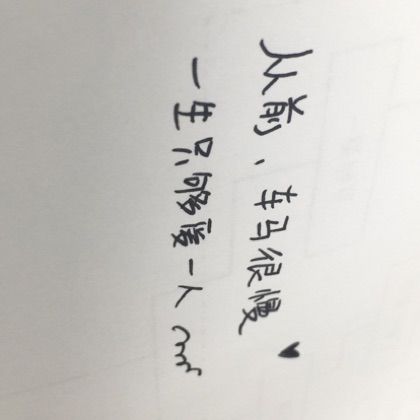 从前、车马很慢♥
一生只够爱一人